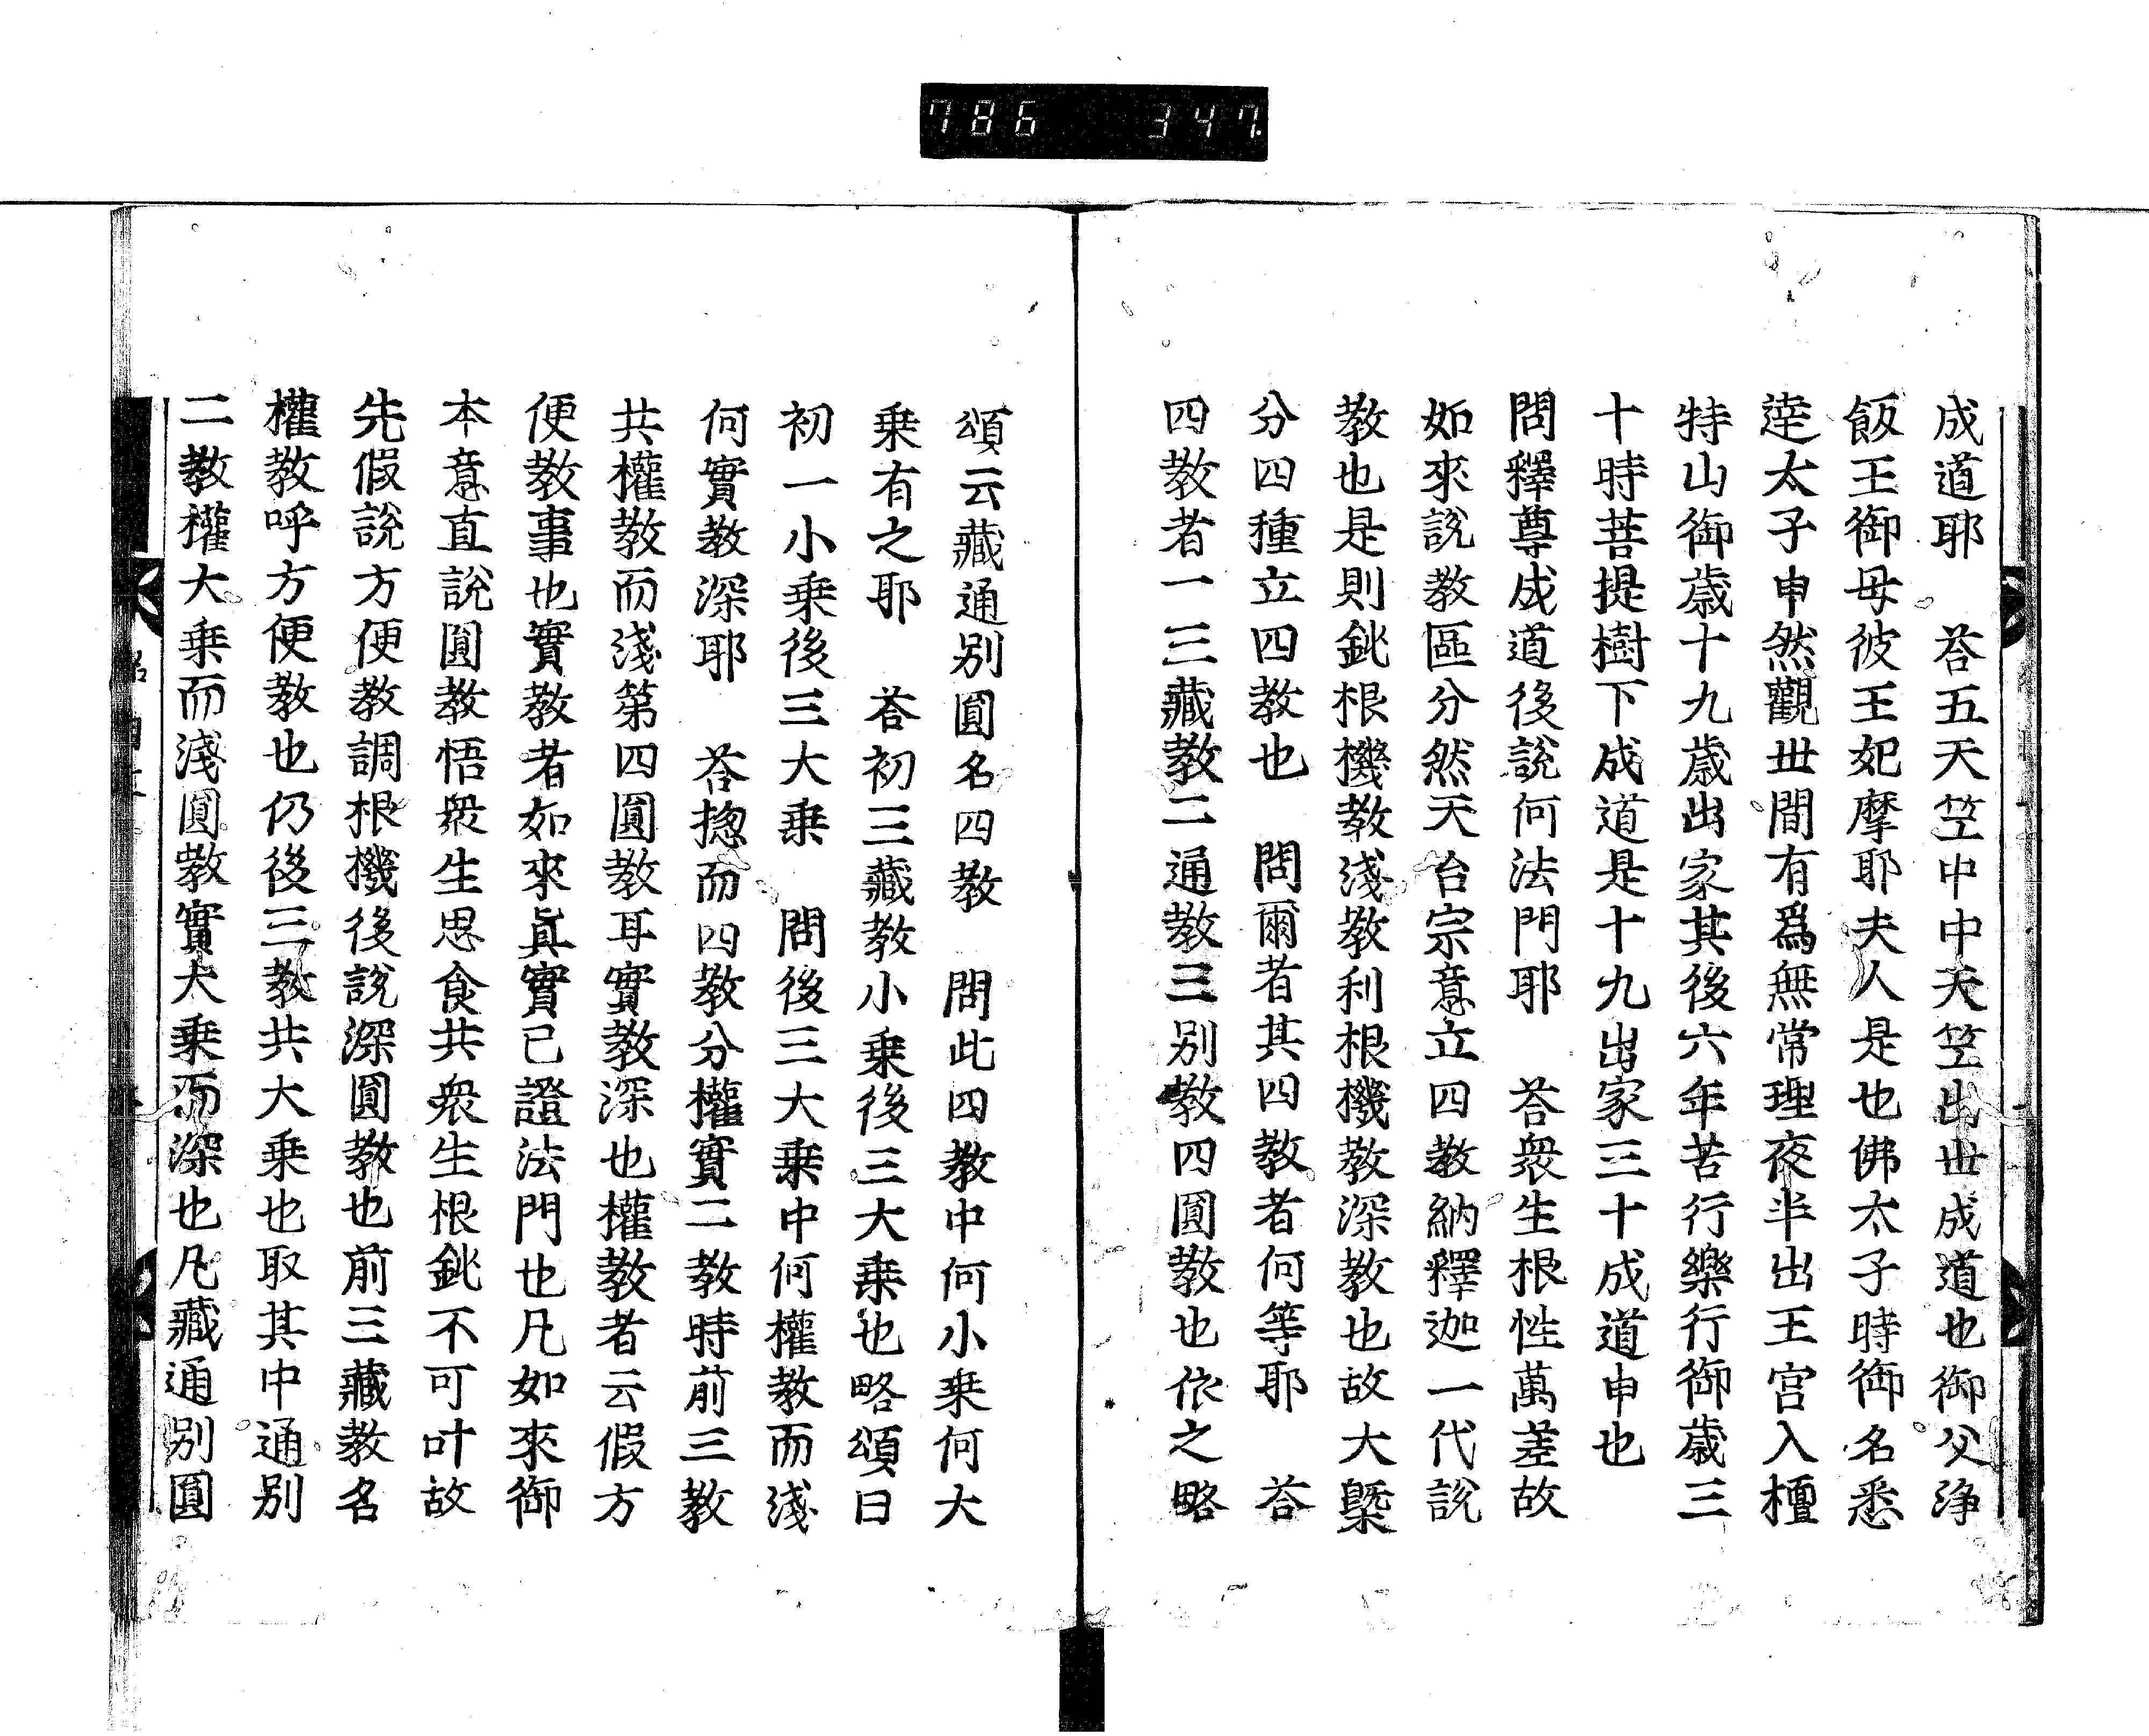 786 347.
成道耶　荅五天笁中中天笁出丗成道也御父浄
飯王御母彼王妃摩耶夫人是也佛太子時御名悉
逹太子申然觀丗間有爲無常理夜半出王宫入檀
特山御歳十九歳出家其後六年苦行樂行御歳三
十時菩提樹下成道是十九出家三十成道申也
問釋尊成道後説何法門耶　荅衆生根性萬差故
如來説教區分然天台宗意立四教納釋迦一代説
教也是則鈋根機教淺教利根機教深教也故大槩
分四種立四教也　問爾者其四教者何等耶　荅
四教者一三藏教二通教三别教四圓教也依之略
頌云藏通别圓名四教　問此四教中何小乗何大
乗有之耶　荅初三藏教小乗後三大乗也略頌曰
初一小乗後三大乗　問後三大乗中何權教而淺
何實教深耶　荅揔而四教分權實二教時前三教
共權教而淺第四圓教耳實教深也權教者云假方
便教事也實教者如來眞實已證法門也凡如來御
本意直説圓教悟衆生思食共衆生根鈋不可叶故
先假説方便教調根機後説深圓教也前三藏教名
權教呼方便教也仍後三教共大乗也取其中通别
二教權大乗而淺圓教實大乗而深也凡藏通别圓